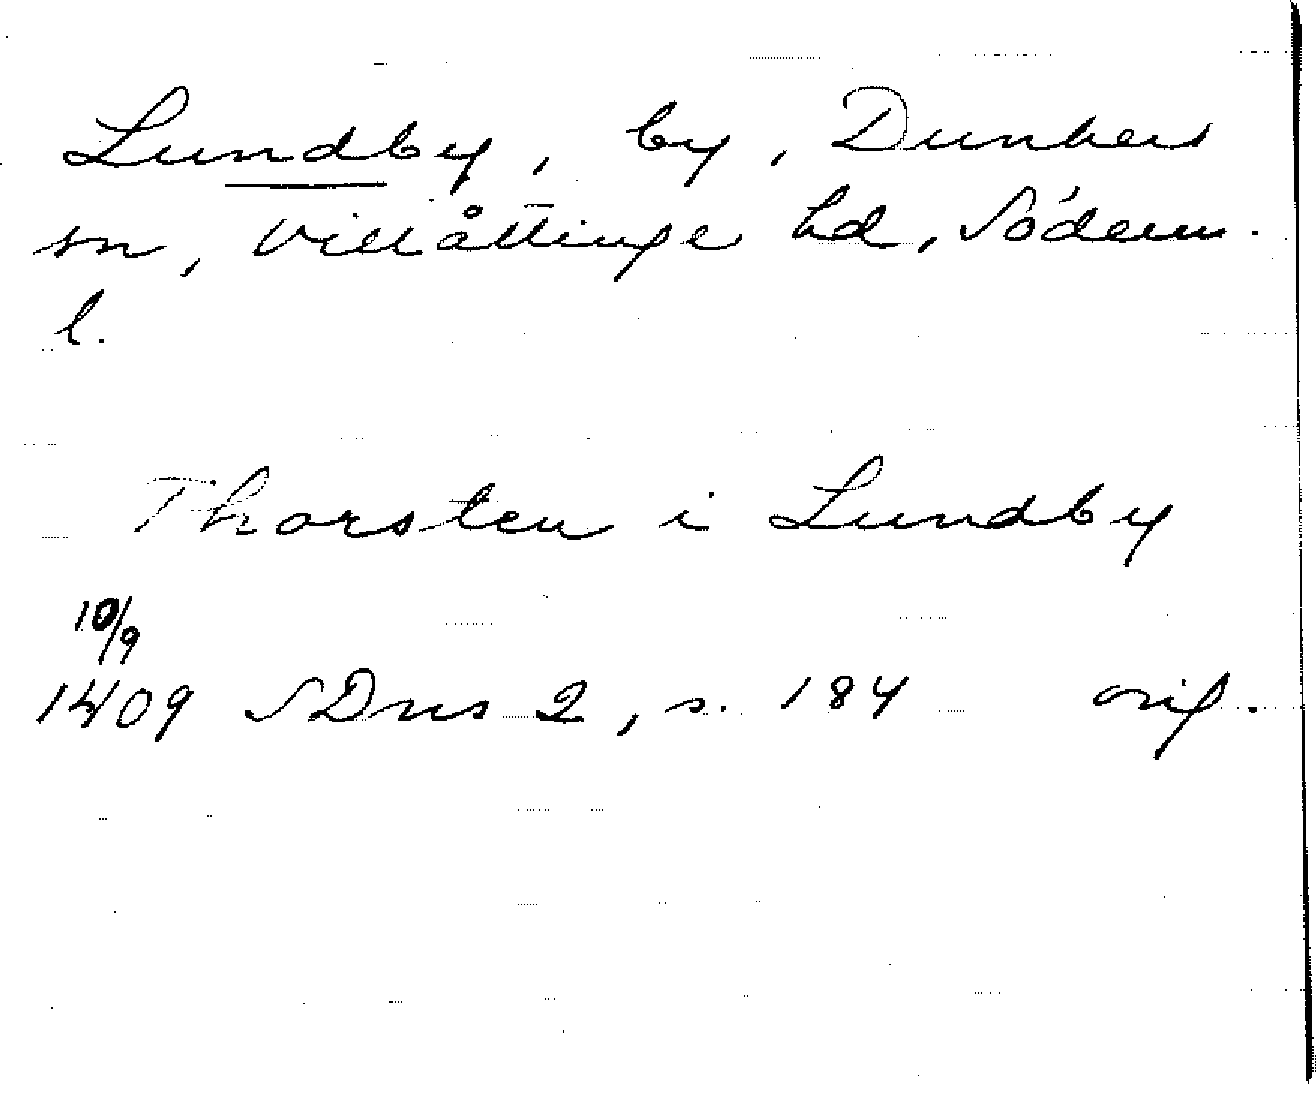 Lundby, by, Dunkers
sn, Villåttinge hd, Söderm.
l.
Thorsten i Lundby
10/9
1409 SDns 2, s. 184 orig.